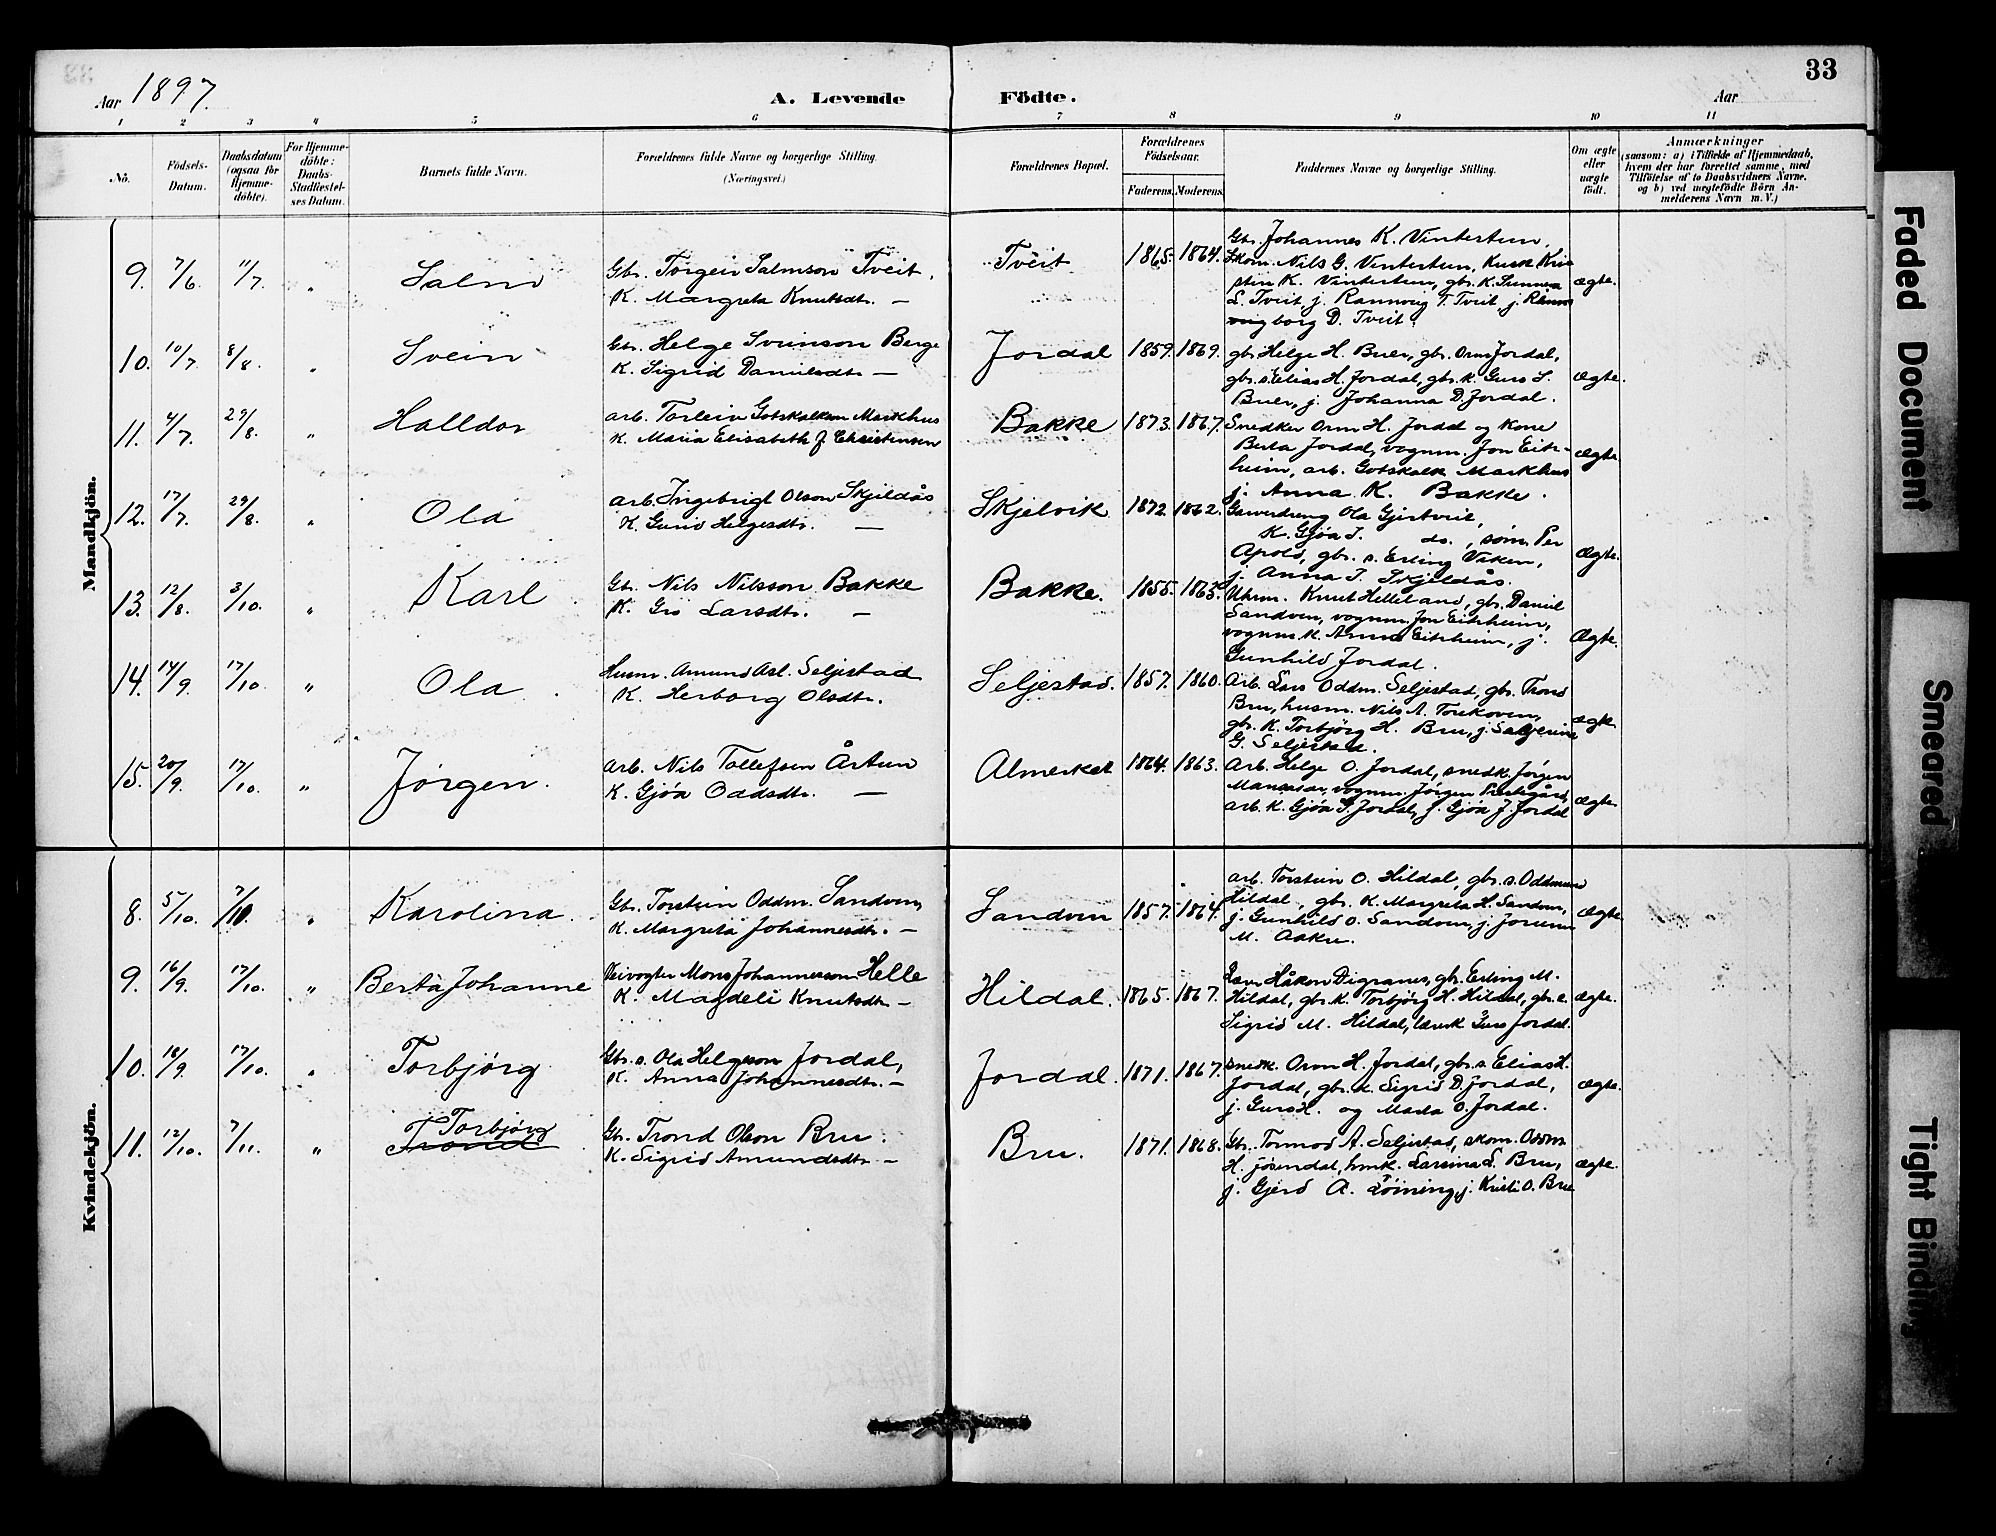 33
Aar 1897.
A. Levende Födte.
Aar
1 2 3 4 5 6 7 8 9 10 11
No.
Födsels-Datum.
Daabsdatum (ogsaa for Hjemme-döbte).
For Hjemme-döbte: Daabs-Stadfæstel-ses Datum.
Barnets fulde Navn.
Forældrenes fulde Navne og borgerlige Stilling. (Næringsvei.)
Forældrenes Bopæl.
Forældrenes Födselsaar.
Faderens. Moderens.
Faddernes Navne og borgerlige Stilling.
Om ægte eller uægte født.
Anmærkninger
(saasom: a) i Tilfælde af Hjemmedaab,
hvem der har forrettet samme, med
Tilföielse af to Daabsvidners Navne,
og b) ved uægtefödte Börn An-
melderens Navn m. V.)
Mandkjön.
9. 7/6 11/7. " Salm Gbr. Torgeir Salmson Tveit, Tveit 1865. 1864. Gbr. Johannes K. Vintertun,
K. Margreta Knutsdtr. — Skom. Nils G. Vintertun,
K. Vintertun, gbr. K. Sunneva ægte.
L. Tveit, j. Rannveig T. Tveit, j.
borg D. Tveit.
10. 10/7. 8/8. " Svein Gbr. Helge Sveinson Berge Jordal 1859. 1869. gbr. Helge H. Buer, gbr. Orm Jordal,
K. Sigrid Danielsdtr. — gbr. s. Elias H. Jordal, gbr. k. Guro S. ægte.
Buer, j. Johanna D. Jordal.
11. 4/7. 29/8. " Halldor arb. Torleiv Gotskalksen Markhus Bakke 1873. 1867. Snedker Orm H. Jordal og Kone
K. Maria Elisabeth f. Christensen Berta Jordal, vognm. Jon Eitr-
heim, arb. Gotskalk Markhus ægte.
j. Anna K. Bakke.
12. 17/7. 29/8. " Ola arb. Ingebrigt Olson Skjeldås Skjelvik 1872. 1862. Ola Gjertveit,
K. Guro Helgesdtr. — K. Gjøa T. do., søm. Per
Apold, gbr. s. Erling Viken, ægte.
j. Anna T. Skjeldås.
13. 12/8. 3/10. " Karl Gbr. Nils Nilsson Bakke Bakke. 1855. 1863. Uhrm. Knut Helleland, gbr. Daniel
K. Gro Larsdtr. — Sandven, vognm. Jon Eitrheim,
vognm. k. Anna Eitrheim, j. ægte.
Gunhild Jordal.
14. 14/9. 17/10. " Ola Husm. Amund Asl. Seljestad Seljestad. 1857. 1860. Arb. Lars Oddm. Seljestad, gbr. Trond
K. Herborg Olsdtr. Bru, husm. Nils A.
gbr. K. Torbjörg H. Bru, j. ægte
G. Seljestad.
15. 20/9. 17/10. " Jørgen. arb. Nils Tollefsen Årtun Almerket 1864. 1863. Arb. Helge O. Jordal, snedk. Jørgen
K. Gjøa Oddsdtr. — vognm. Jørgen Prestegård,
arb. K. Gjøa T. Jordal, j. Gjøa J. Jordal ægte
Kvindekjön.
8. 5/10. 7/10. " Karolina. Gbr. Torstein Oddm. Sandven, Sandven 1857. 1864. arb. Torstein O. Hildal, gbr. s. Oddmund
K. Margreta Johannesdtr. — Hildal, gbr. K. Margreta H. Sandven, ægte
j. Gunhild O. Sandven, j. Jorunn
M. Aakre.
9. 16/9. 17/10. " Berta Johanne Veivogter Mons Johannesson Helle Hildal. 1865. 1867. Lær. Håkon Digranes, gbr. Erling M.
K. Magdeli Knutsdtr. — Hildal, gbr. k. Torbjörg H. Hildal, gbr. e. ægte.
Sigrid M. Hildal, lærerk. Guro Jordal.
10. 18/9. 17/10. " Torbjørg Gbr. s. Ola Helgeson Jordal, Jordal. 1871. 1867. snedk. Orm H. Jordal, gbr. s. Elias H.
K. Anna Johannesdtr. — Jordal, gbr. k. Sigrid D. Jordal, ægte.
j. Guro H. og Marta O. Jordal.
11. 12/10. 7/11. " Torbjørg Trond Gbr. Trond Olson Bru. Bru. 1871. 1868. Gbr. Tormod A. Seljestad, skom. Oddm
K. Sigrid Amundsdtr. — H. Jösendal, hmk. Larsina L. Bru, ægte.
j. Gjerd A. Löining, j. Kristi O. Bru
Faded Document
Smeared
Tight Binding